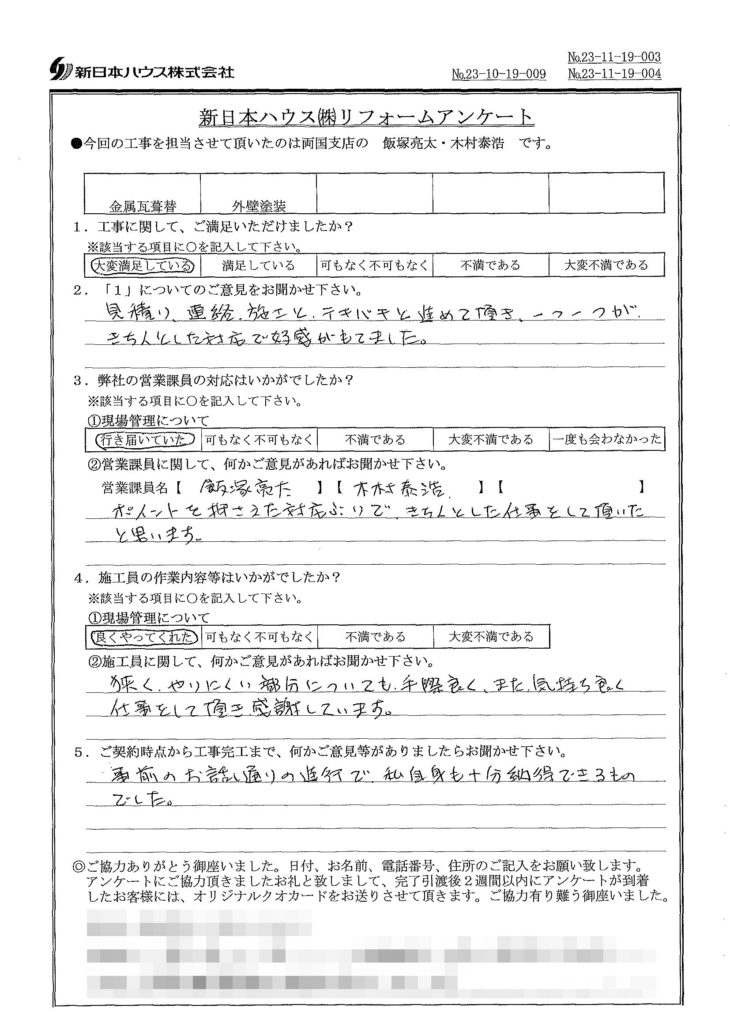 新日本ハウス株式会社
№23-11-19-003
№23-10-19-009 №23-11-19-004
新日本ハウス㈱リフォームアンケート
●今回の工事を担当させて頂いたのは両国支店の 飯塚亮太・木村泰浩 です。
金属瓦葺替 外壁塗装
1．工事に関して、ご満足いただけましたか？
※該当する項目に○を記入して下さい。
大変満足している 満足している 可もなく不可もなく 不満である 大変不満である
2．「1」についてのご意見をお聞かせ下さい。
見積り、連絡、施工と、テキパキと進めて頂き、一つ一つが、
きちんとした対応で好感がもてました。
3．弊社の営業課員の対応はいかがでしたか？
※該当する項目に○を記入して下さい。
①現場管理について
行き届いていた 可もなく不可もなく 不満である 大変不満である 一度も会わなかった
②営業課員に関して、何かご意見があればお聞かせ下さい。
営業課員名【 飯塚亮太 】【 木村泰浩 】【 】
ポイントを押さえた対応ぶりで、きちんとした仕事をして頂いた
と思います。
4．施工員の作業内容等はいかがでしたか？
※該当する項目に○を記入して下さい。
①現場管理について
良くやってくれた 可もなく不可もなく 不満である 大変不満である
②施工員に関して、何かご意見があればお聞かせ下さい。
狭く、やりにくい部分についても、手際良く、また、気持ち良く
仕事をして頂き、感謝しています。
5．ご契約時点から工事完工まで、何かご意見等がありましたらお聞かせ下さい。
事前のお話し通りの進行で、私自身も十分納得できるもの
でした。
◎ご協力ありがとう御座いました。日付、お名前、電話番号、住所のご記入をお願い致します。
アンケートにご協力頂きましたお礼と致しまして、完了引渡後２週間以内にアンケートが到着
したお客様には、オリジナルクオカードをお送りさせて頂きます。ご協力有り難う御座いました。